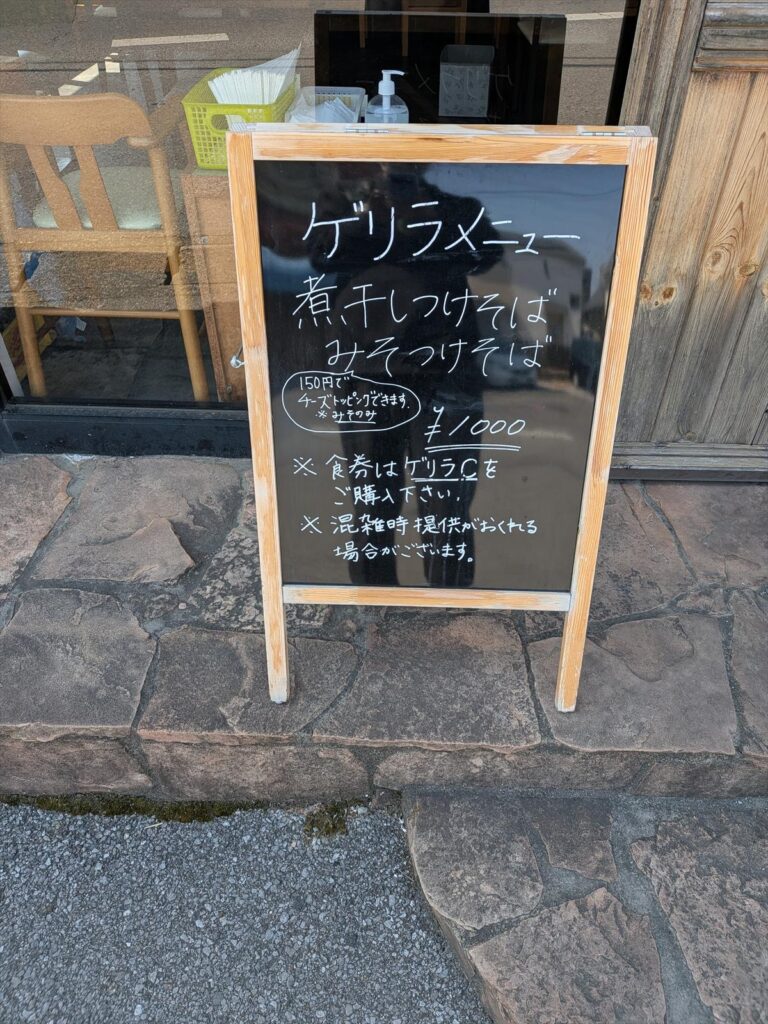 ゲリラメニュー
煮干しつけそば
みそつけそば
150円で
チーズトッピングできます。
※みそのみ
¥1000
※ 食券はゲリラCを
ご購入下さい。
※ 混雑時提供がおくれる
場合がございます。